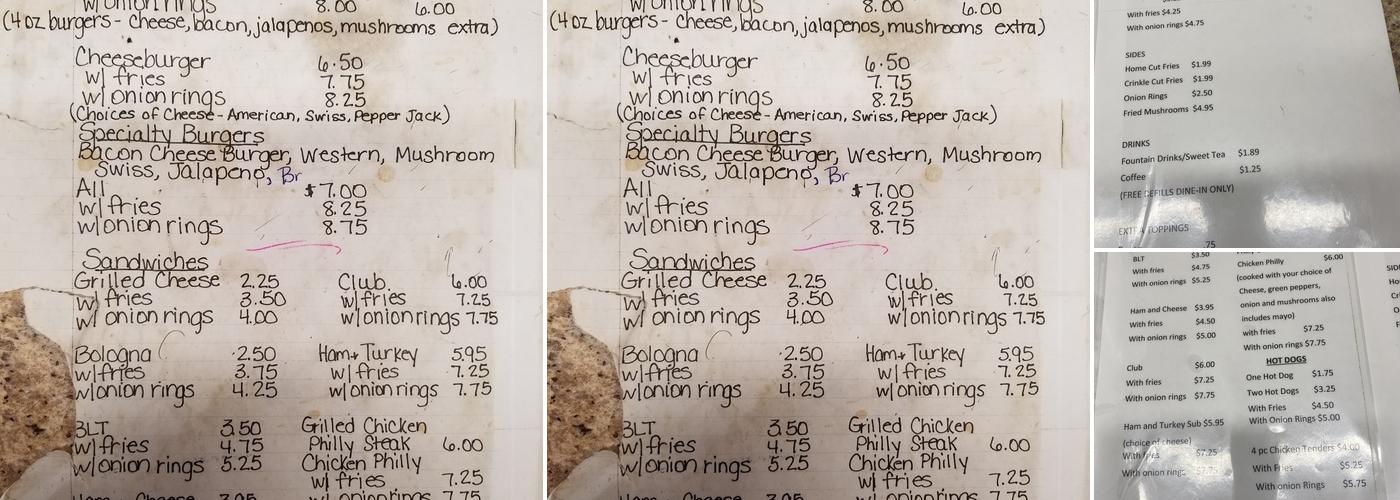 w/ onion rings 8.00 6.00
(4oz burgers - cheese, bacon, jalapenos, mushrooms extra)
Cheeseburger 6.50
w/ fries 7.75
w/ onion rings 8.25
(Choices of Cheese - American, Swiss, Pepper Jack)
Specialty Burgers
Bacon Cheese Burger, Western, Mushroom
Swiss, Jalapeno, Br
All $7.00
w/ fries 8.25
w/ onion rings 8.75
Sandwiches
Grilled Cheese 2.25 Club 6.00
w/ fries 3.50 w/ fries 7.25
w/ onion rings 4.00 w/ onion rings 7.75
Bologna 2.50 Ham + Turkey 5.95
w/ fries 3.75 w/ fries 7.25
w/ onion rings 4.25 w/ onion rings 7.75
BLT 3.50 Grilled Chicken
w/ fries 4.75 Philly Steak 6.00
w/ onion rings 5.25 Chicken Philly
w/ fries 7.25
w/ onion rings 7.75
w/ onion rings 8.00 6.00
(4oz burgers - cheese, bacon, jalapenos, mushrooms extra)
Cheeseburger 6.50
w/ fries 7.75
w/ onion rings 8.25
(Choices of Cheese - American, Swiss, Pepper Jack)
Specialty Burgers
Bacon Cheese Burger, Western, Mushroom
Swiss, Jalapeno, Br
All $7.00
w/ fries 8.25
w/ onion rings 8.75
Sandwiches
Grilled Cheese 2.25 Club 6.00
w/ fries 3.50 w/ fries 7.25
w/ onion rings 4.00 w/ onion rings 7.75
Bologna 2.50 Ham + Turkey 5.95
w/ fries 3.75 w/ fries 7.25
w/ onion rings 4.25 w/ onion rings 7.75
BLT 3.50 Grilled Chicken
w/ fries 4.75 Philly Steak 6.00
w/ onion rings 5.25 Chicken Philly
w/ fries 7.25
w/ onion rings 7.75
With fries $4.25
With onion rings $4.75
SIDES
Home Cut Fries $1.99
Crinkle Cut Fries $1.99
Onion Rings $2.50
Fried Mushrooms $4.95
DRINKS
Fountain Drinks/Sweet Tea $1.89
Coffee $1.25
(FREE REFILLS DINE-IN ONLY)
EXTRA TOPPINGS
.75
BLT $3.50
With fries $4.75
With onion rings $5.25
Ham and Cheese $3.95
With fries $4.50
With onion rings $5.00
Club $6.00
With fries $7.25
With onion rings $7.75
Ham and Turkey Sub $5.95
(choice of cheese)
With fries $7.25
With onion rings $7.75
Chicken Philly $6.00
(cooked with your choice of
Cheese, green peppers,
onion and mushrooms also
includes mayo)
with fries $7.25
With onion rings $7.75
HOT DOGS
One Hot Dog $1.75
Two Hot Dogs $3.25
With Fries $4.50
With Onion Rings $5.00
4 pc Chicken Tenders $4.00
With Fries $5.25
With onion Rings $5.75